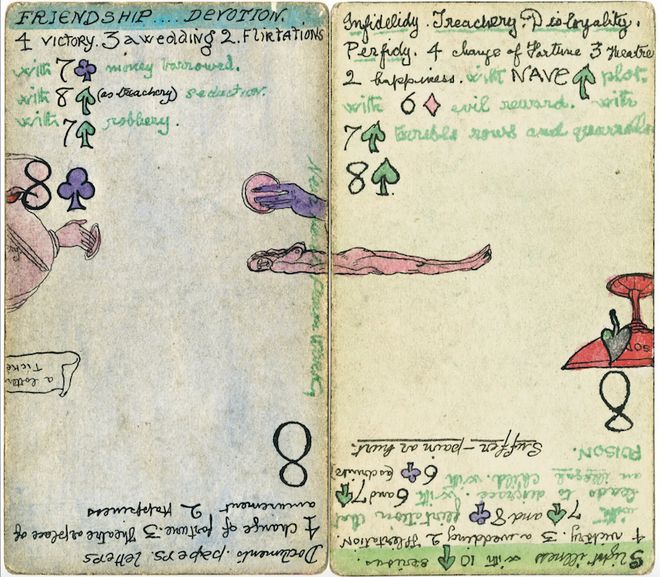 FRIENDSHIP.... DEVOTION.
4 VICTORY. 3 a wedding 2. FLIRTATIONS
with 7♣ money borrowed.
with 8♠ (as treachery) seduction.
with 7♠ robbery.
8♣
a lottery
Ticket
8
Documents. papers. letters
4 change of fortune. 3 Theatre or place of
amusement 2 Happiness
Infidelidy. Treachery. Disloyality.
Perfidy. 4 change of Fortune 3 Theatre
2 happiness. with NAVE ♠ plot
with 6♦ evil reward. with
7♠ terrible rows and quarrels
8♠
8
Slight illness with 10♠ serious
4 victory 3 a wedding 2 flirtation
7♠ and 8♣ flirtation that
leads to disgrace. with 6 and 7♠
an illegal child. with 6♣ (as drunk)
POISON.
Suffer - pain or hurt.